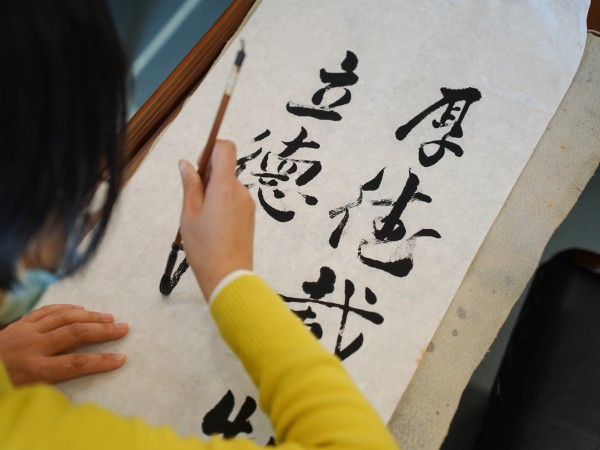 厚德载
立德